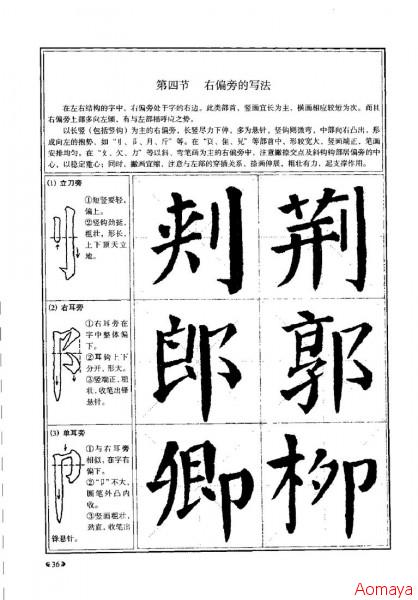 第四节 右偏旁的写法
在左右结构的字中，右偏旁处于字的右边，此类部首，竖画宜长为主，横画相应较短为次。而且
右偏旁上部多向左倾，有与左部相呼应之势。
以长竖（包括竖钩）为主的右偏旁，长竖尽力下伸，多为悬针，竖钩则微弯，中部向右凸出，形
安排均匀。在“攵、欠、力”等以斜、弯笔画为主的右偏旁中，注意撇捺交点及斜钩钩部居偏旁的中
心，以稳定重心；同时，撇画宜缩，注意与左部的穿插关系，捺画伸展，粗壮有力，起支撑作用。
(1) 立刀旁
①短竖要轻，
偏上。
②竖钩劲挺，
粗壮，形长，
上下顶天立
地。
刺 荆
(2) 右耳旁
①右耳旁在
字中整体偏
下。
②耳钩上下
分开，形大。
③竖端正，粗
壮，收笔出锋
悬针。
郎 郭
(3) 单耳旁
①与右耳旁
相似，在字右
偏下。
②“卩”不大，
撅笔外凸内
收。
③竖画粗壮，
劲直，收笔出
锋悬针。
卿 柳
36
Aomaya